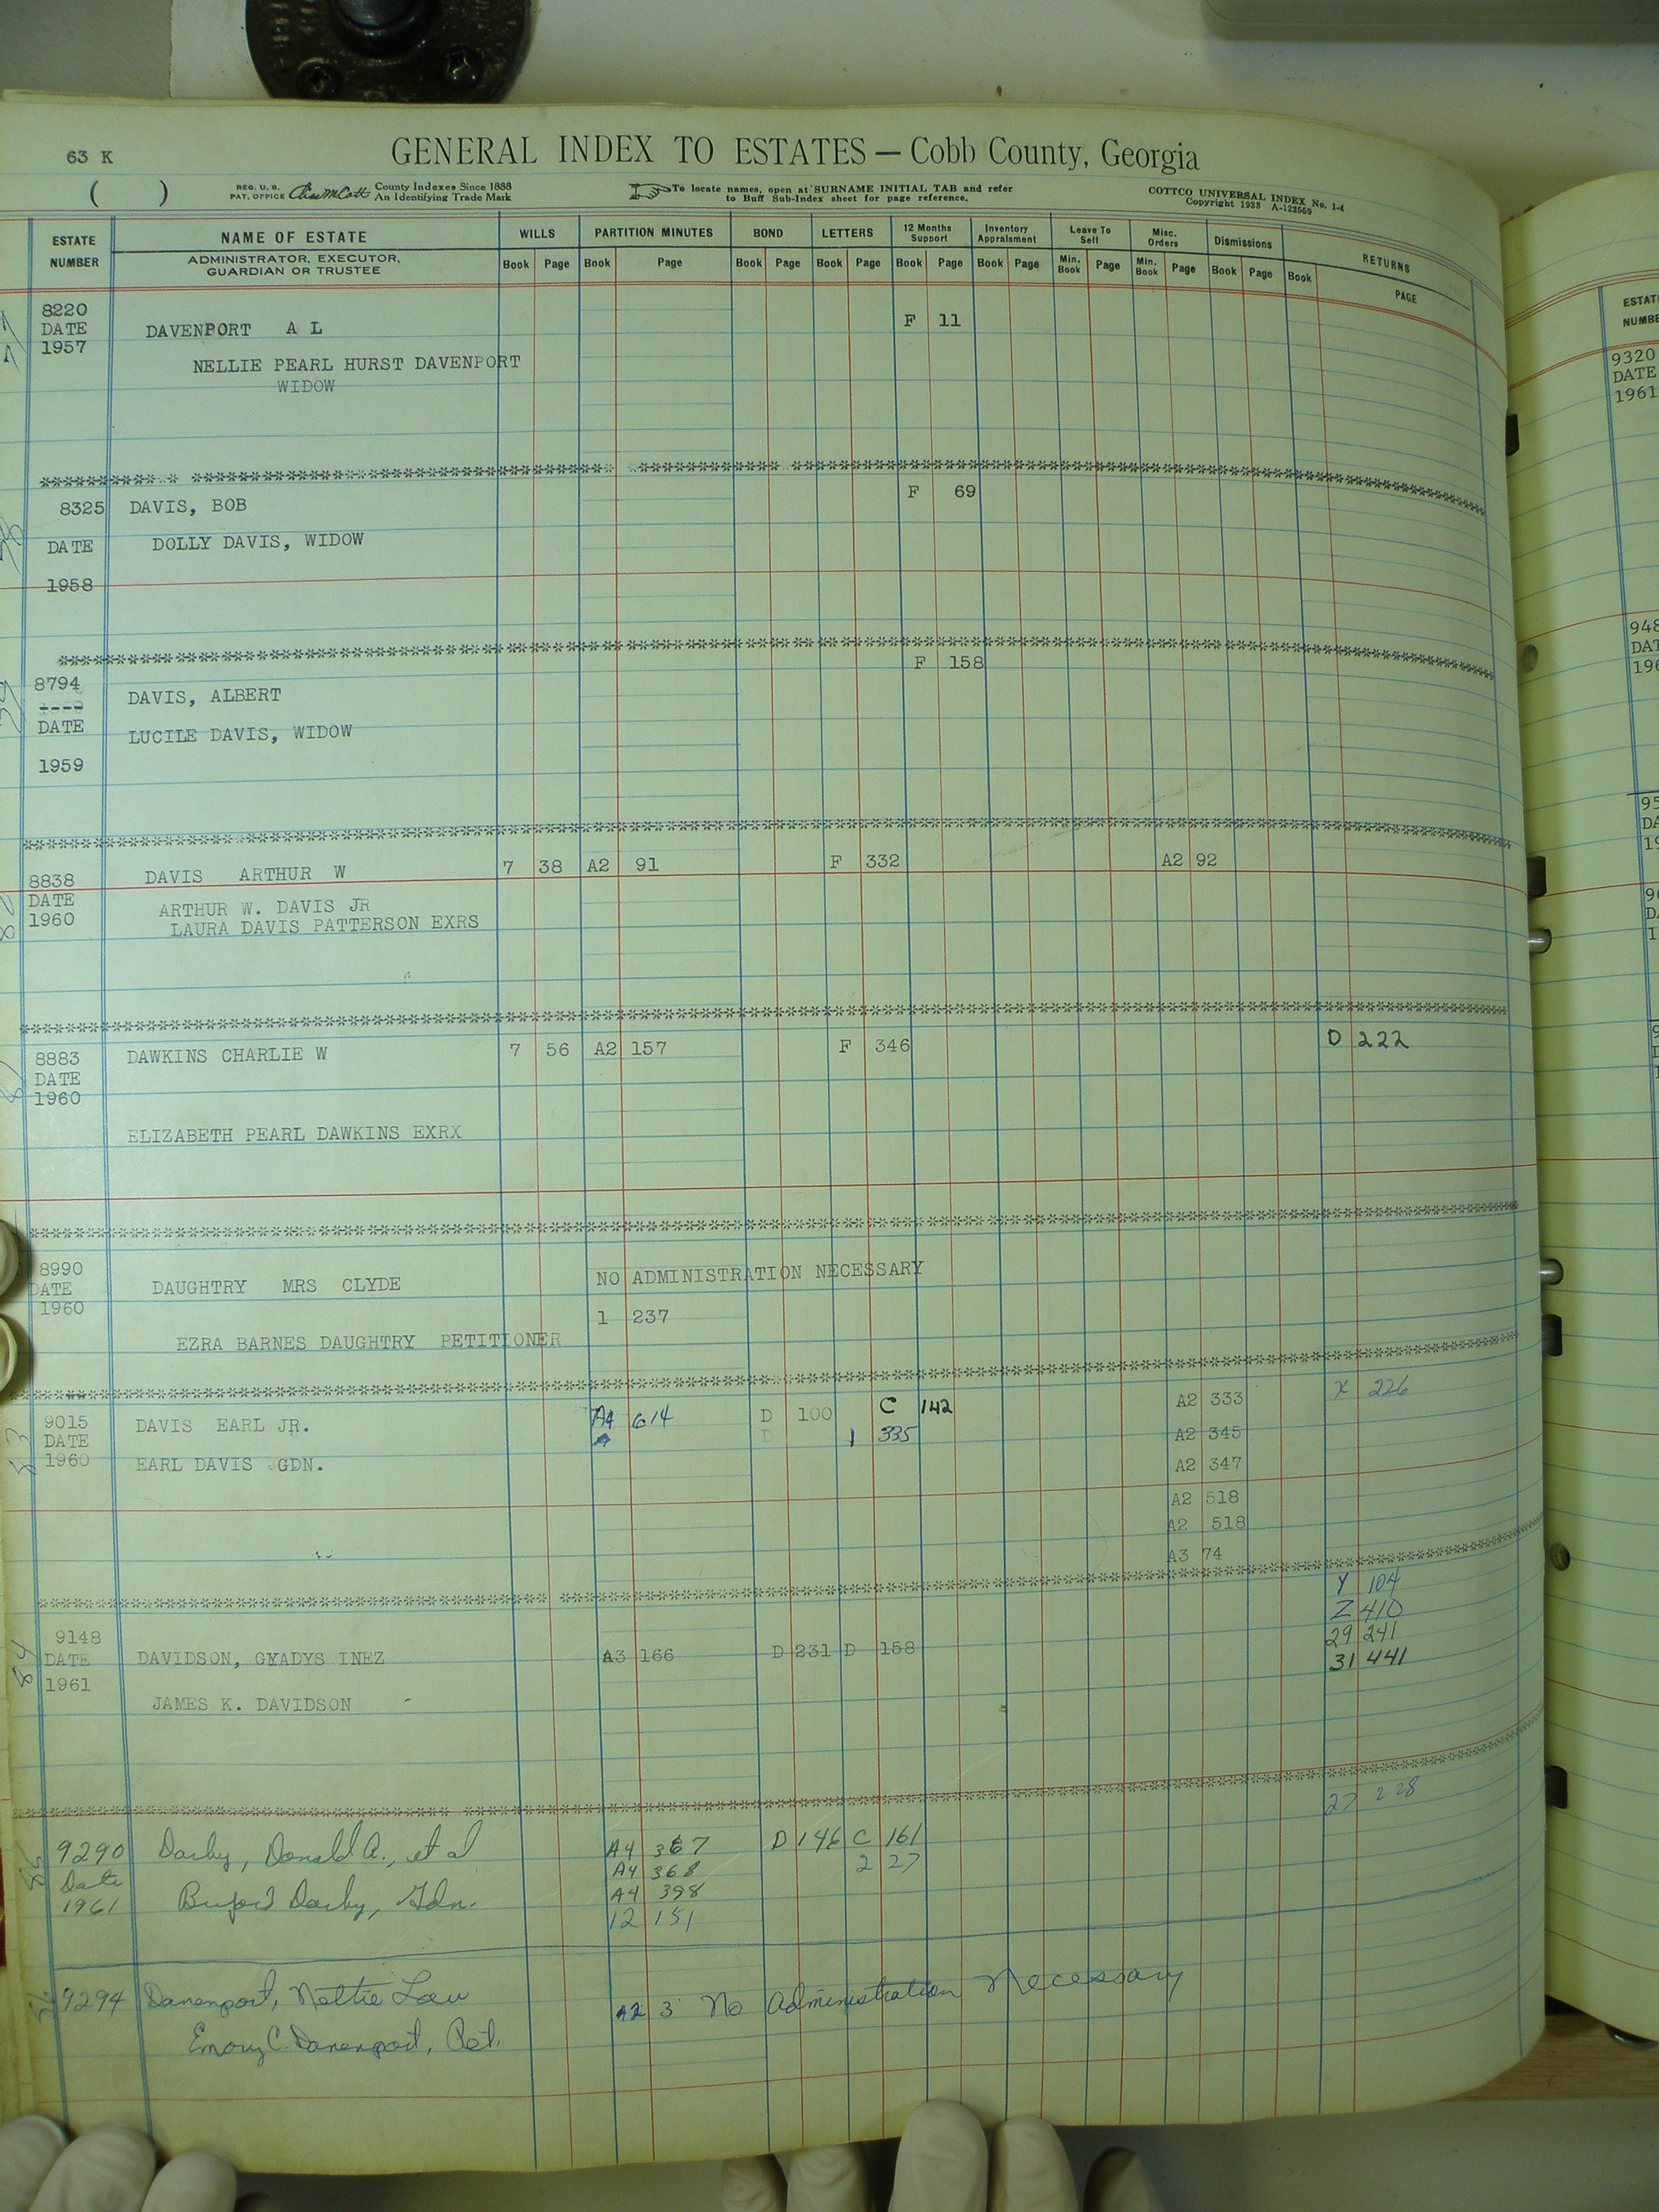 63 K
GENERAL INDEX TO ESTATES — Cobb County, Georgia
( )
REG. U. S. PAT. OFFICE
County Indexes Since 1888
An Identifying Trade Mark
To locate names, open at SURNAME INITIAL TAB and refer
to Buff Sub-Index sheet for page reference.
COTTCO UNIVERSAL INDEX No. 1-4
Copyright 1933 A-122569
ESTATE NUMBER
NAME OF ESTATE
ADMINISTRATOR, EXECUTOR,
GUARDIAN OR TRUSTEE
WILLS PARTITION MINUTES BOND LETTERS 12 Months Support Inventory Appraisment Leave To Sell Misc. Orders Dismissions RETURNS
Book Page Book Page Book Page Book Page Book Page Book Page Min. Book Page Min. Book Page Book Page Book PAGE
8220
DATE DAVENPORT A L F 11
1957
NELLIE PEARL HURST DAVENPORT
WIDOW
8325 DAVIS, BOB F 69
DATE DOLLY DAVIS, WIDOW
1958
8794 DAVIS, ALBERT F 158
DATE
LUCILE DAVIS, WIDOW
1959
8838 DAVIS ARTHUR W 7 38 A2 91 F 332 A2 92
DATE ARTHUR W. DAVIS JR
1960 LAURA DAVIS PATTERSON EXRS
8883 DAWKINS CHARLIE W 7 56 A2 157 F 346 D 222
DATE
1960
ELIZABETH PEARL DAWKINS EXRX
8990 NO ADMINISTRATION NECESSARY
DATE DAUGHTRY MRS CLYDE
1960 1 237
EZRA BARNES DAUGHTRY PETITIONER
9015 DAVIS EARL JR. A4 614 D 100 C 142 A2 333 X 226
DATE D 1 335 A2 345
1960 EARL DAVIS GDN. A2 347
A2 518
A2 518
A3 74
Y 104
Z 410
9148 29 241
DATE DAVIDSON, GYADYS INEZ A3 166 D 231 D 158 31 441
1961
JAMES K. DAVIDSON
27 228
9290 Darby, Donald A., et al A4 367 D 146 C 161
Date A4 368 2 27
1961 Buford Darby, Gdn. A4 398
12 151
9294 Davenport, Nettie Lou A2 3 No Administration Necessary
Emory C. Davenport, Pet.
9320
DATE
1961